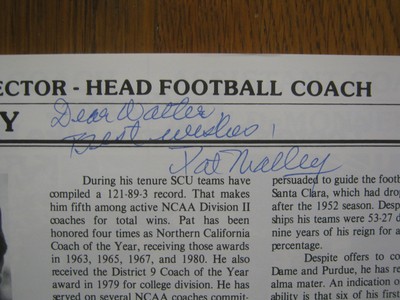 ECTOR - HEAD FOOTBALL COACH
Y
Dear Walter,
Best wishes!
Pat Malley
During his tenure SCU teams have
compiled a 121-89-3 record. That makes
him fifth among active NCAA Division II
coaches for total wins. Pat has been
honored four times as Northern California
Coach of the Year, receiving those awards
in 1963, 1965, 1967, and 1980. He also
received the District 9 Coach of the Year
award in 1979 for college division. He has
served on several NCAA coaches commit-
persuaded to guide the footb
Santa Clara, which had drop
after the 1952 season. Desp
ships his teams were 53-27 d
nine years of his reign for a
percentage.
Despite offers to co
Dame and Purdue, he has re
alma mater. An indication o
ability is that six of his first